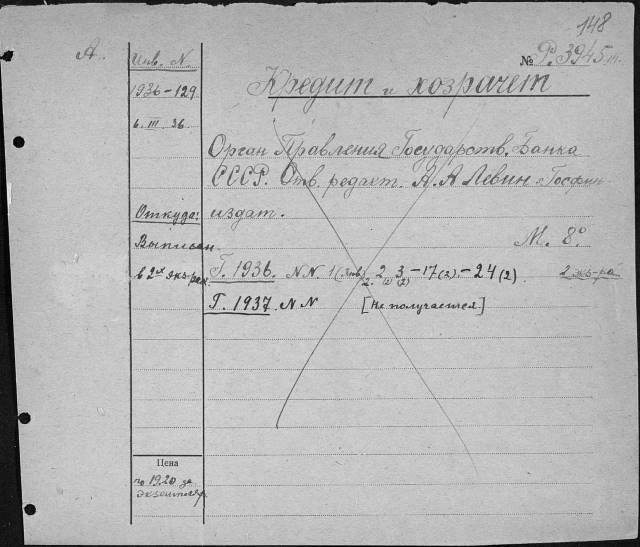 148
А.
Инв. N.
№ Р.3945
1936–129
Кредит и хозрасчет
6. III. 36
Орган Правления Государств. Банка
СССР. Отв. редакт. А. А Левин. Госфин-
Откуда:
издат.
Выписан
М. 8°
в 2ух экз-рах
Г. 1936. N N. 1 (янв) 2. 2 (2) 3 (2) –17 (2). –24 (2)
2 экз-ра
Г. 1937. N N [Не получается]
Цена
по 19,20 за
экземпляр.